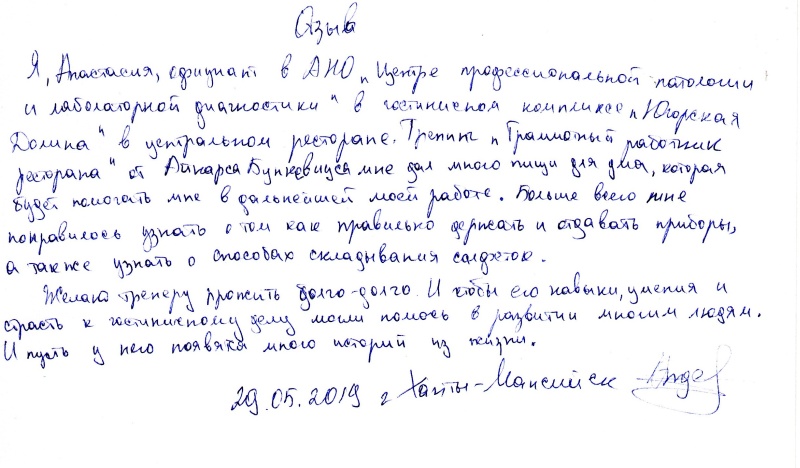 Отзыв
Я, Анастасия, официант в АНО „Центре профессиональной патологии
и лаболаторной диагностики" в гостиничном комплексе „Югорская
Долина" в центральном ресторане. Тренинг „Грамотный работник
ресторана" от Айнарса Бункевицуса мне дал много пищи для ума, которая
будет помогать мне в дальнейшей моей работе. Больше всего мне
понравилось узнать о том как правильно держать и отдавать приборы,
а также узнать о способах складывания салфеток.
Желаю тренеру прожить долго-долго. И чтобы его навыки, умения и
страсть к гостиничному делу могли помочь в развитии многим людям.
И пусть у него появятся много историй из жизни.
29.05.2019 г Ханты-Мансийск